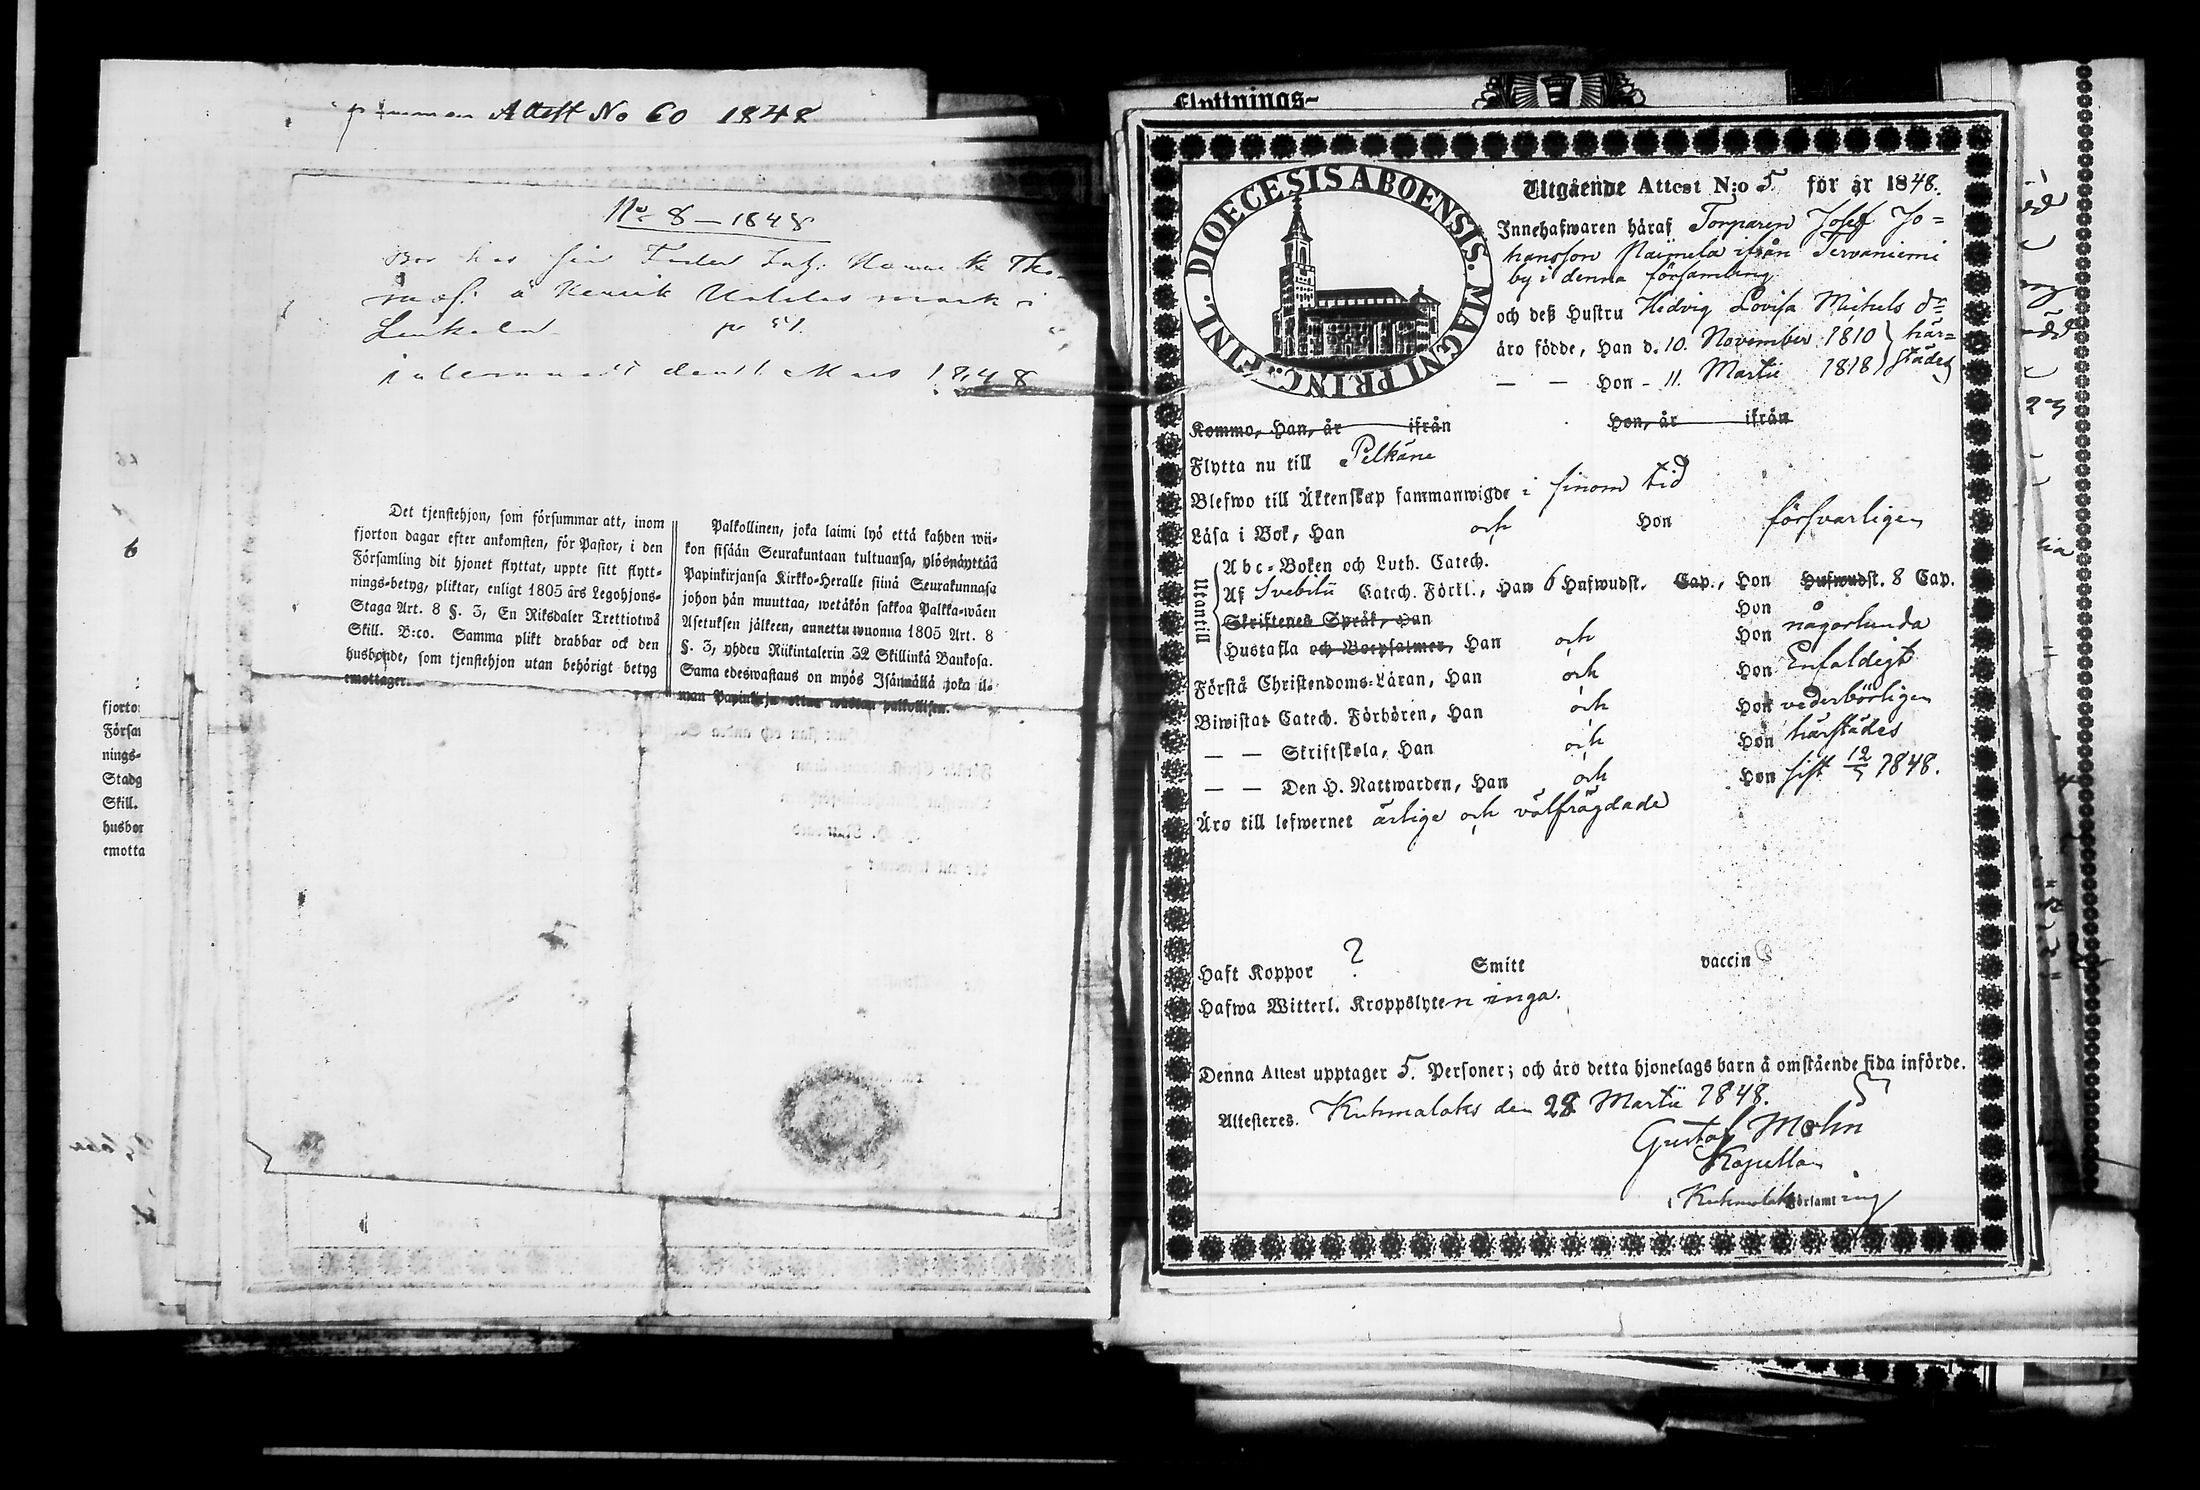 Attest No 60 1848
No 8 — 1848
Bor hos sin Fader
å Henrik mark i
p 51.
den 11 Mars 1848
Det tjenstehjon, som försummar att, inom
fjorton dagar efter ankomsten, för Pastor, i den
Församling dit hjonet flyttat, uppte sitt flytt-
nings-betyg, pliktar, enligt 1805 års Legohjons-
Staga Art. 8 §. 3, En Riksdaler Trettiotwå
Skill. B:co. Samma plikt drabbar ock den
husbonde, som tjenstehjon utan behörigt betyg
emottager.
Palkollinen, joka laimi lyö että kahden wii-
kon sisään Seurakuntaan tultuansa, ylösnäyttää
Papinkirjansa Kirkko-Heralle siinä Seurakunnasa
johon hän muuttaa, wetäkön sakkoa Palkka-wäen
Asetuksen jälkeen, annettu wuonna 1805 Art. 8
§. 3, yhden Riikintalerin 32 Skillinkä Baukosa.
Sama edeswastaus on myös Isännällä joka il-
man Papinkirja ottaa wastan palkollisen.
fjorto
Försa
nings-
Stadg
Skill.
husbor
emotta
Flyttnings-
DIOECESIS ABOENSIS. MAGNI PRINC. FINL.
Utgående Attest N:o 5 för år 1848.
Innehafwaren häraf Torparen Josef Jo=
hansson ifrån Tervaniemi
by i denna församling
och deß Hustru Hedvig Lovisa Michels dr
äro födde, Han d. 10. November 1810 } här=
— — Hon - 11. Martii 1818 } städes
Komma, Han, år ifrån Hon, år ifrån
Flytta nu till Pelkäne
Blefwo till Äktenskap sammanwigde i sinom tid
Läsa i Bok, Han och Hon försvarligen
Utantill
Abc-Boken och Luth. Catech.
Af Svebilii Catech. Förkl., Han 6 Hufwudst. Cap., Hon Hufwudst. 8 Cap.
Skriftenes Språk, Han Hon
Hustafla och Botpsalmer, Han och Hon någorlunda
Förstå Christendoms-Läran, Han och Hon Enfaldigt
Biwistat Catech. Förhören, Han och Hon vederbörligen
— — Skriftskola, Han och Hon härstädes
— — Den H. Nattwarden, Han och Hon sist 12/3 1848.
Äro till lefwernet ärlige och välfrägdade
Haft Koppor ? Smitt vaccin
Hafwa Witterl. Kroppslyten inga.
Denna Attest upptager 5. Personer; och äro detta hjonelags barn å omstående sida införde.
Attesteres. Kuhmalaks den 28 Martii 1848.
Gustaf Molin
Kapellan
i Kuhmalaks församling